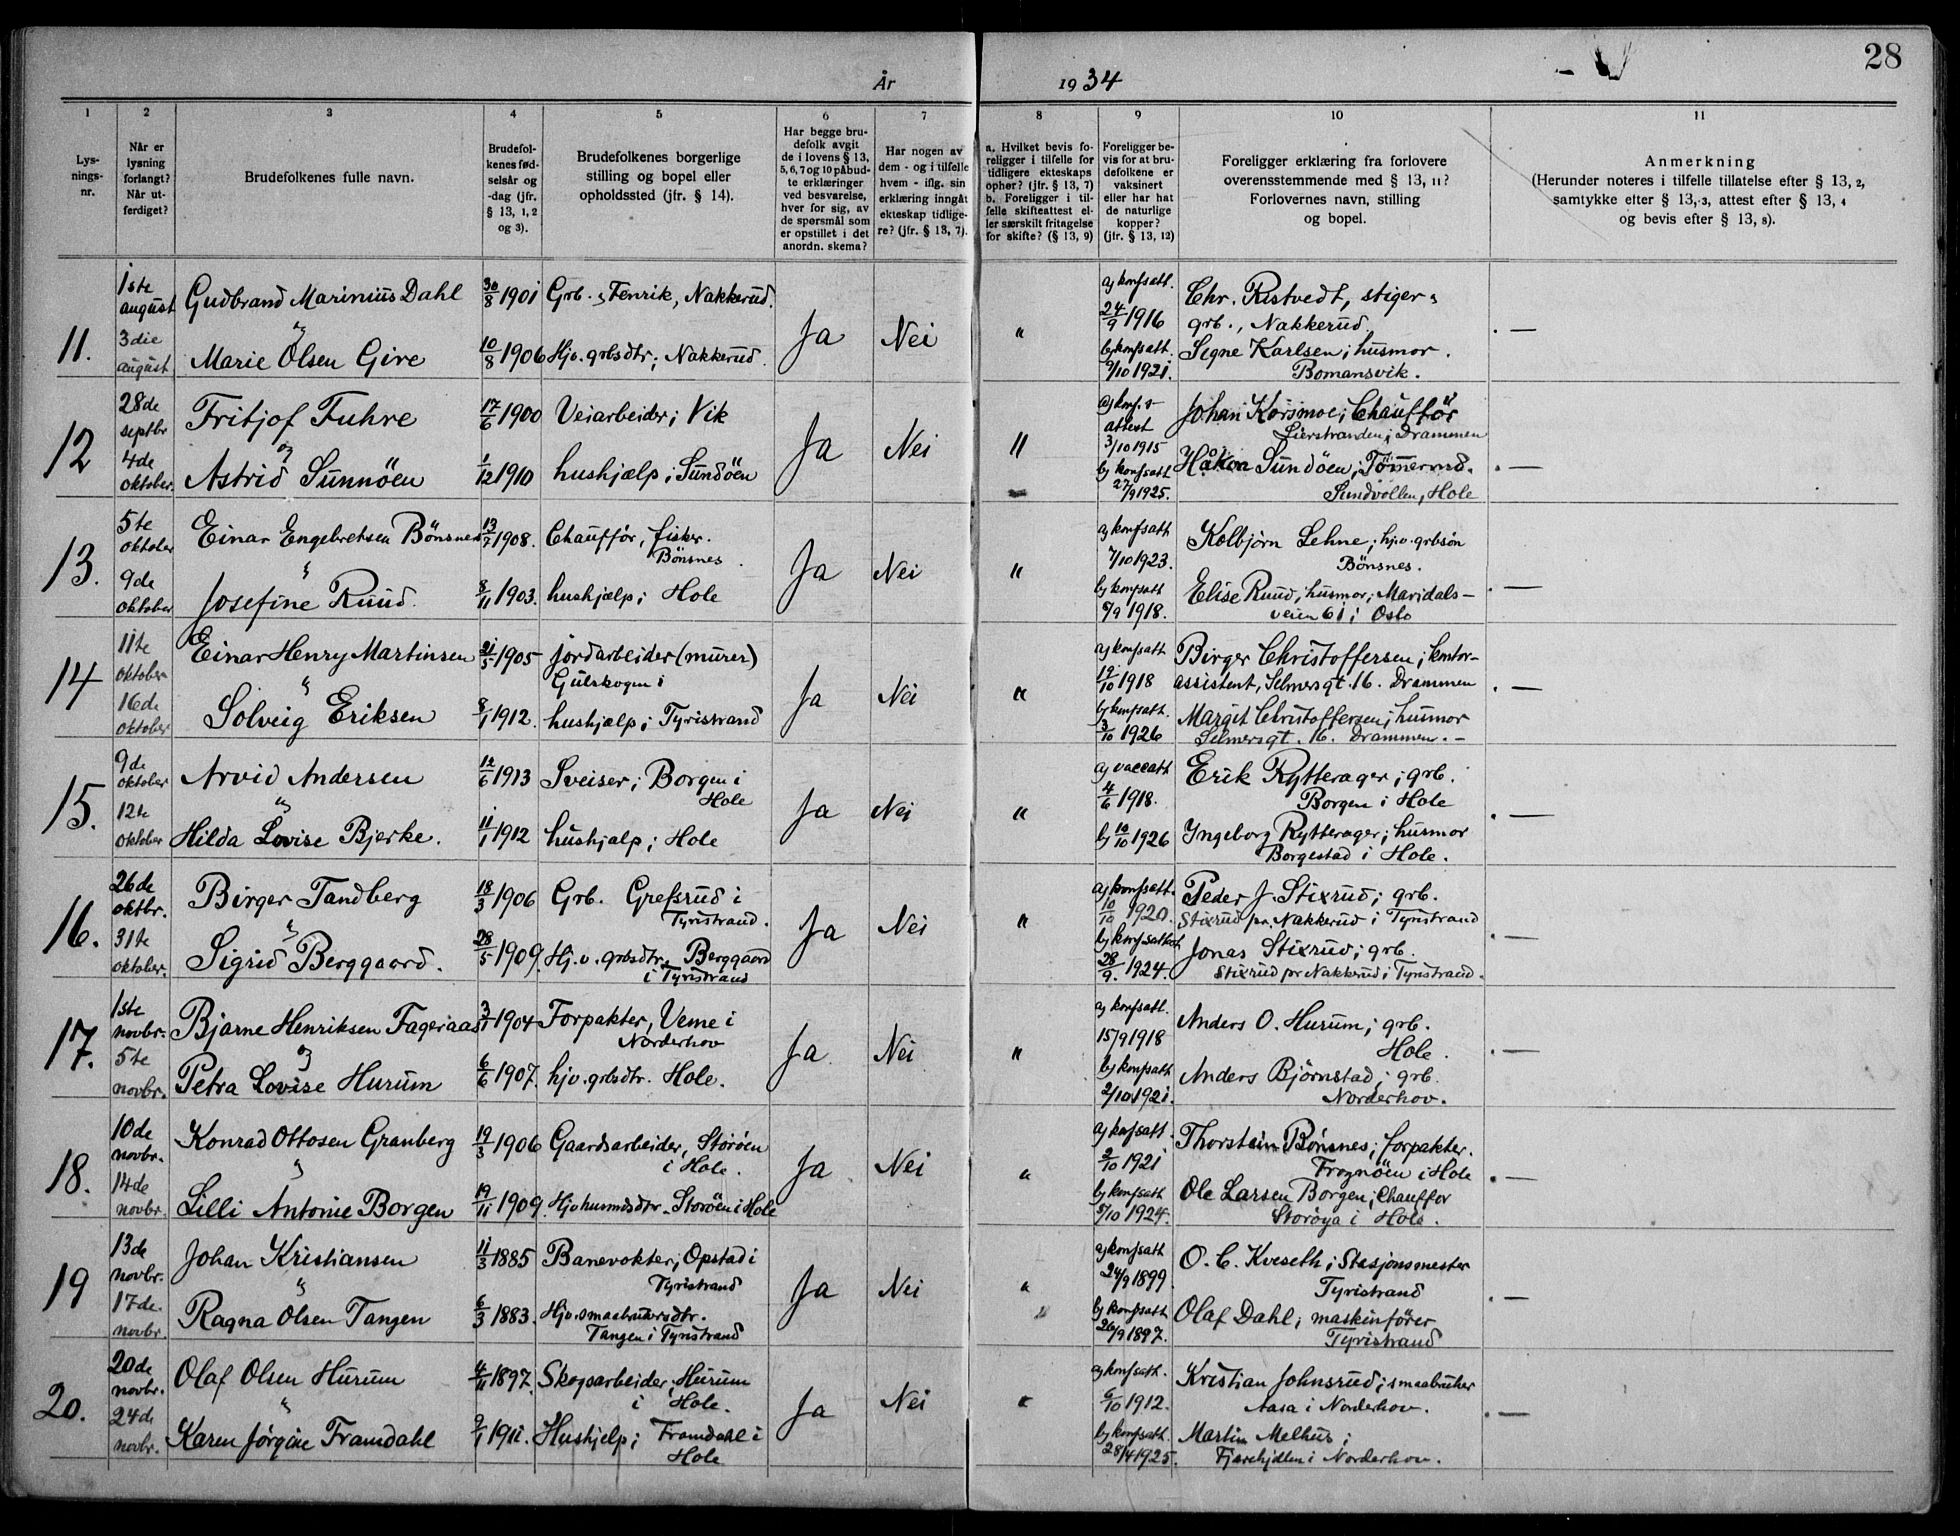 28
År 1934
1 2 3 4 5 6 7 8 9 10 11
Lysningsnr.
Når er lysning forlangt? Når utferdiget?
Brudefolkenes fulle navn.
Brudefolkenes fødselsår og -dag (jfr. § 13, 1, 2 og 3).
Brudefolkenes borgerlige stilling og bopel eller opholdssted (jfr. § 14).
Har begge brudefolk avgit de i lovens § 13, 5, 6, 7 og 10 påbudte erklæringer ved besvarelse, hver for sig, av de spørsmål som er opstillet i det anordn. skema?
Har nogen av dem - og i tilfelle hvem - iflg. sin erklæring inngåt ekteskap tidligere? (jfr. § 13, 7).
a. Hvilket bevis foreligger i tilfelle for tidligere ekteskaps ophør? (jfr. § 13, 7) b. Foreligger i tilfelle skifteattest eller særskilt fritagelse for skifte? (§ 13, 9)
Foreligger bevis for at brudefolkene er vaksinert eller har hat de naturlige kopper? (jfr. § 13, 12)
Foreligger erklæring fra forlovere overensstemmende med § 13, 11? Forlovernes navn, stilling og bopel.
Anmerkning (Herunder noteres i tilfelle tillatelse efter § 13, 2, samtykke efter § 13, 3, attest efter § 13, 4 og bevis efter § 13, 8).
11. 1ste august 3die august
Gudbrand Marinius Dahl 30/8 1901 Grb. s Fenrik, Nakkerud.
og
Marie Olsen Give 10/8 1906 Hjv. grbsdtr; Nakkerud.
Ja Nei "
a) konfsatt. 24/9 1916 b) konfsatt. 9/10 1921.
Chr. Ristvedt, stiger s
grb., Nakkerud.
Signe Karlsen; husmor.
Bomansvik.
. —
12 28de septbr 4de oktober.
Fritjof Fuhre 17/6 1900 Veiarbeider; Vik
og
Astrid Sunnöen 1/12 1910 hushjælp; Sundöen
Ja Nei "
a) konf.s-attest 3/10 1915 b) konfsatt. 27/9 1925.
Johan Korsmoe; Chaufför
Lierstranden; Drammen
Håkon Sundöen; Tömmermd.
Sundvollen, Hole
. —
13. 5te oktober 9de oktober
Einar Engebretsen Bönsnes 13/7 1908. Chaufför, fisker.
Bönsnes.
"
Josefine Ruud. 8/11 1903. hushjælp; Hole
Ja Nei "
a) konfsatt 7/10 1923. b) konfsatt 8/9 1918.
Kolbjörn Lehne; hjv. grbsön
Bönsnes.
Elise Ruud; husmor; Maridals-
veien 61 i Oslo
. —
14 11te oktober 16de oktober
Einar Henry Martinsen 21/5 1905 jordarbeider (murer)
Gulskogen i
"
Solveig Eriksen 8/1 1912. hushjælp; Tyristrand
Ja Nei "
a) konfsatt 19/10 1918 b) konfsatt. 3/10 1926
Birger Christoffersen; kontor-
assistent, Selmersgt. 16. Drammen
Margit Christoffersen; husmor
Selmersgt. 16. Drammen. -
. —
15. 9de oktober 12te oktober
Arvid Andersen 12/6 1913 Sveiser; Borgen i
Hole
"
Hilda Lovise Bjerke. 11/1 1912 hushjalp; Hole
Ja Nei "
a) vaccatt 4/6 1918. b) 10/10 1926
Erik Rytterager; grb.
Borgen i Hole
Ingeborg Rytterager; husmor
Borgestad i Hole.
. —
16. 26de oktbr. 31te oktober.
Birger Tandberg 18/3 1906 Grb. Grefsrud i
Tyristrand.
"
Sigrid Berggaard. 28/5 1909. Hj. v. grbsdtr. Berggaard
i Tyristrand
Ja Nei "
a) konfsatt. 10/10 1920. b) konfsattest 28/9. 1924.
Peder J. Stixrud; grb.
Stixrud pr. Nakkerud i Tyristrand
Jonas Stixrud; grb.
Stixrud pr Nakkerud i Tyristrand.
. —
17. 1ste novbr. 5te novbr.
Bjarne Henriksen Fageraas 3/1 1904 Forpakter, Veme i
Norderhov
og
Petra Lovise Hurum 6/6 1907. hjv. grbsdtr. Hole.
Ja Nei "
a) konfsatt. 15/9 1918 b) konfsatt 2/10 1921.
Anders O. Hurum; grb.
Hole.
Anders Björnstad; grb.
Norderhov.
. —
18. 10de novbr. 14de novbr.
Konrad Ottosen Granberg 19/3 1906 Gaardsarbeider, Storöen
i Hole.
"
Lilli Antonie Borgen 19/11 1909. Hjv husmdsdtr. Storöen i Hole
Ja Nei "
a) konfsatt. 2/10 1921 b) konfsatt 5/10 1924.
Thorstein Bönsnes; forpakter.
Frognöen i Hole
Ole Larsen Borgen; Chauffor
Storöya i Hole.
. —
19 13de novbr. 17de. novbr.
Johan Kristiansen 11/3 1885 Banevokter; Opstad i
Tyristrand
"
Ragna Olsen Tangen 6/3 1883. Hjv. smaabrukersdtr.
Tangen i Tyristrand
Ja Nei "
a) konfsatt 24/9 1899. b) konfsatt 26/9 1897.
O. C. Kveseth; Stasjonsmester
Tyristrand
Olaf Dahl; maskinförer
Tyristrand
. —
20. 20de novbr. 24de novbr.
Olaf Olsen Hurum 4/11 1897. Skogsarbeider, Hurum
i Hole.
"
Karen Jörgine Framdahl 9/1 1911. Hushjelp; Framdahl i
Hole
Ja Nei "
a) konfsatt. 6/10 1912. b) konfsatt. 28/4 1925.
Kristian Johnsrud; smaabruker
Aasa i Norderhov.
Martin Melhus;
Norderhov.
. —